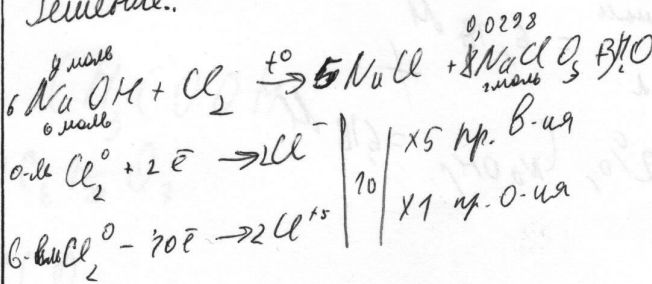 Решение:
0,0298
y моль
6 NaOH + Cl₂ t° → 5 NaCl + 1 NaClO₃ + 3H₂O
6 моль 1 моль
о-ль Cl₂⁰ + 2ē → 2Cl⁻ | 10 | ×5 пр. в-ия
в-ль Cl₂⁰ − 10ē → 2Cl⁺⁵ ×1 пр. о-ия